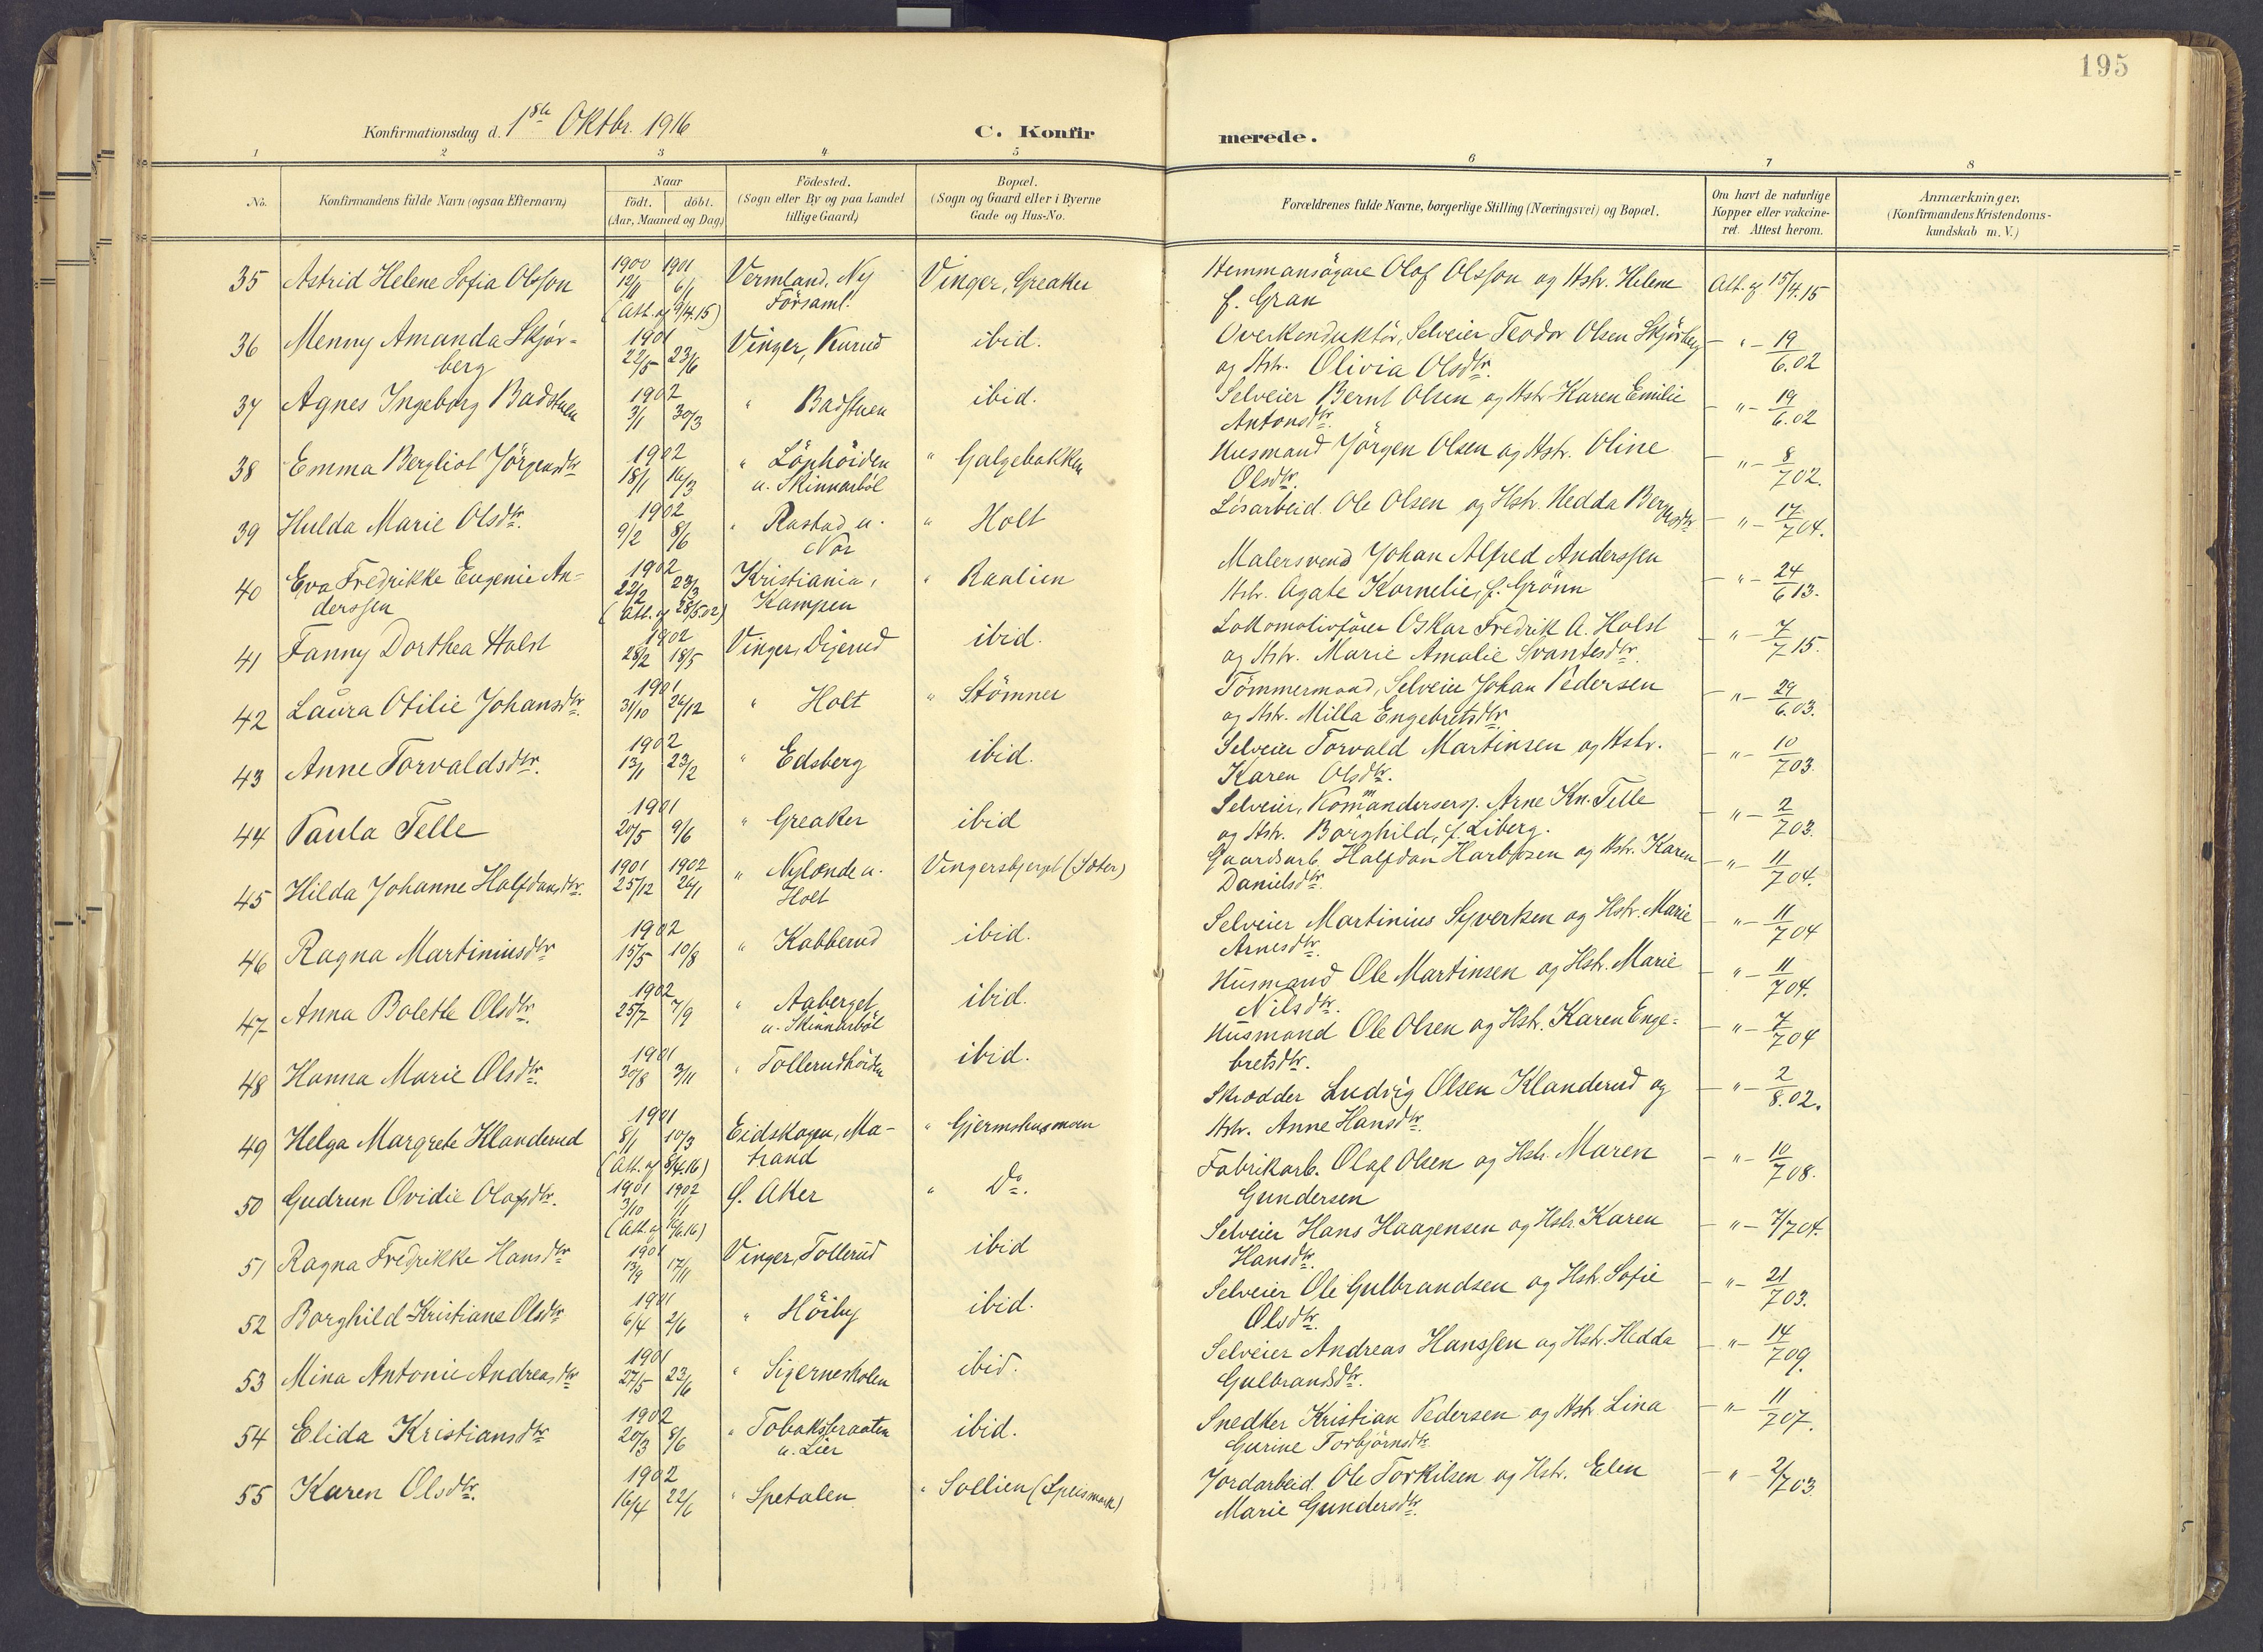 195
Konfirmationsdag d. 1ste Oktbr. 1916
C. Konfirmerede.
1 2 3 4 5 6 7 8
No. Konfirmandens fulde Navn (ogsaa Efternavn) Naar födt. döbt. (Aar, Maaned og Dag) Födested. (Sogn eller By og paa Landet tillige Gaard) Bopæl. (Sogn og Gaard eller i Byerne Gade og Hus-No. Forældrenes fulde Navne, borgerlige Stilling (Næringsvei) og Bopæl. Om havt de naturlige Kopper eller vakcineret. Attest herom. Anmærkninger. (Konfirmandens Kristendomskundskab m. V.)
35 Astrid Helene Sofia Olsson 1900 12/11 1901 6/1 Vermland, Ny Vinger, Greaker Hemmansägare Olof Olsson og Hstr. Helene Att. af 15/4.15
(Att. af 9/4.15) Församl. f. Gran
36 Menny Amanda Skjör- 1901 22/5 23/6 Vinger, Kurud ibid. Overkonduktör, Selveier Teodor Olsen Skjörberg — " — 19/6.02
berg og Hstr. Olivia Olsdtr.
37 Agnes Ingeborg Badstuen 1902 3/1 30/3 " Badstuen ibid. Selveier Bernt Olsen og Hstr Karen Emilie — " — 19/6.02
Antonsdtr.
38 Emma Bergliot Jörgensdtr 1902 18/1 16/3 " Lönhöiden " Galgebakken Husmand Jörgen Olsen og Hstr. Oline — " — 8/7 02.
u. Skinnarböl Olsdtr.
39 Hulda Marie Olsdtr. 1902 9/2 8/6 " Rastad u. " Holt Lösarbeid. Ole Olsen og Hstr. Hedda Berg Olsdtr — " — 17/7 04.
Nor
40 Eva Fredrikke Eugenie An- 1902 22/2 23/3 Kristiania, " Raalien Malersvend Johan Alfred Anderssen — " — 24/6 13.
derssen (Att. af 28/5.02) Kampen Hstr. Agate Kornelie, f. Grönn
41 Fanny Dorthea Holst 1902 28/2 18/5 Vinger, Digerud ibid. Lokomotivförer Oskar Fredrik A. Holst — " — 7/7 15.
og Hstr. Marie Amalie Svantesdtr.
42 Laura Otilie Johansdtr. 1901 31/10 26/12 " Holt " Stömner Tömmermand, Selveier Johan Pedersen — " — 29/6.03.
og Hstr. Milla Engebretsdtr
43 Anne Torvaldsdtr. 1902 13/1 23/2 " Edsberg ibid. Selveier Torvald Martinsen og Hstr. — " — 10/7 03.
Karen Olsdtr.
44 Paula Telle 1901 20/5 9/6 " Greaker ibid Selveier, Kommandersersj. Arne Kn. Telle — " — 2/7 03.
og Hstr. Borghild, f. Liberg.
45 Hilda Johanne Halfdansdtr. 1901 25/12 1902 26/1 " Nylænde u. Vingersbjerget (Sæter) Gaardsarb. Halfdan Harbosen og Hstr. Karen — " — 11/7 04.
Holt Danielsdtr.
46 Ragna Martiniusdtr 1902 15/5 10/8 " Kabberud ibid. Selveier Martinius Syvertsen og Hstr. Marie — " — 11/7 04
Arnesdtr.
47 Anna Bolette Olsdtr. 1902 25/7 7/9 " Aaberget ibid. Husmand Ole Martinsen og Hstr. Marie — " — 11/7 04.
u. Skinnarböl Nilsdtr.
48 Hanna Marie Olsdtr. 1901 30/8 3/11 " Tollerudhöiden ibid. Husmand Ole Olsen og Hstr. Karen Enge- — " — 7/7 04
bretsdtr.
49 Helga Margrete Klanderud 1901 8/1 10/3 Eidskogen, Ma- " Gjermshusmoen Skrædder Ludvig Olsen Klanderud og — " — 2/8.02.
(Att. af 8/4.16) trand Hstr. Anne Hansdtr.
50 Gudrun Ovidie Olafsdtr. 1901 3/10 1902 1/1 Ö. Aker " Do. Fabrikarb. Olaf Olsen og Hstr. Maren — " — 10/7 08.
Gundersen
51 Ragna Fredrikke Hansdtr 1901 13/9 17/11 Vinger, Tollerud ibid Selveier Hans Haagensen og Hstr. Karen — " — 7/7 04.
Hansdtr.
52 Borghild Kristiane Olsdtr 1901 6/4 2/6 " Höiby ibid. Selveier Ole Gulbrandsen og Hstr. Sofie — " — 21/7 03.
Olsdtr.
53 Mina Antonie Andreasdtr 1901 27/5 23/6 " Sigerneskolen ibid. Selveier Andreas Hanssen og Hstr. Hedda — " — 14/7 09.
Gulbrandsdtr.
54 Elida Kristiansdtr 1902 20/3 8/6 " Tobaksbraaten ibid. Snedker Kristian Pedersen og Hstr Lina — " — 11/7 07.
u. Lier Gurine Torbjörnsdtr.
55 Karen Olsdtr. 1902 16/4 22/6 " Spetalen " Sollien (Speismark) Jordarbeid. Ole Torkilsen og Hstr. Elen — " — 2/7 03
Marie Gundersdtr.